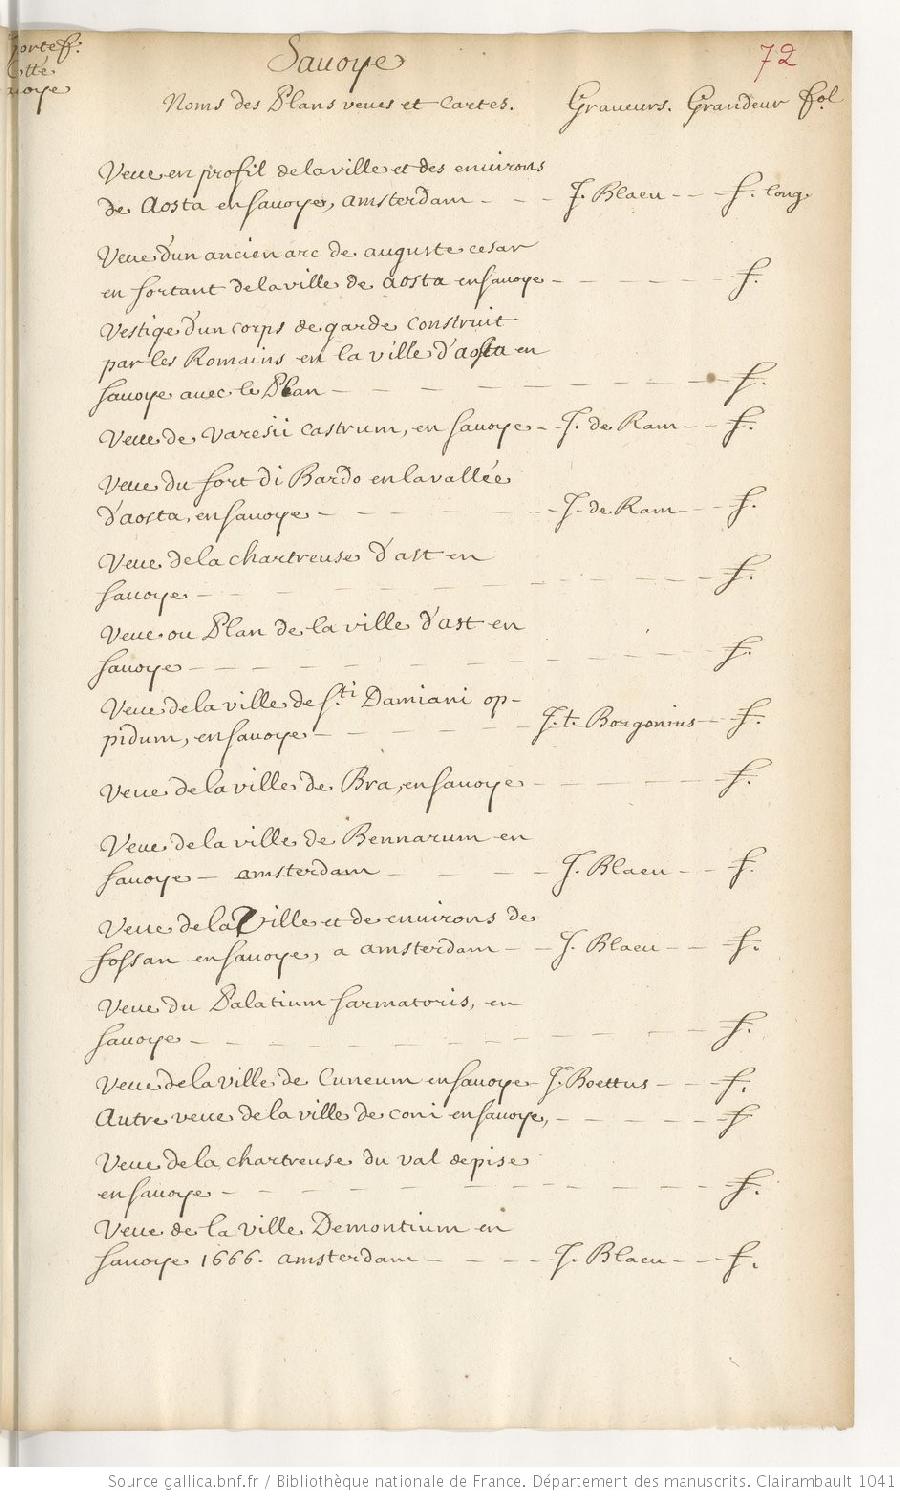 portef.
Cotté
Savoye
Savoye
72
Noms des Plans veues et Cartes. Graveurs. Grandeur fol
Veue en profil de la ville et des environs
de Aosta en Savoye, amsterdam - - - J. Blaeu - - - f. long.
Veue d'un ancien arc de auguste cesar
en sortant de la ville de aosta en Savoye - - - - - f.
Vestige d'un corps de garde construit
par les Romains en la ville d'aosta en
Savoye avec le Plan - - - - - - - - f.
Veue de Varesii castrum, en Savoye - J. de Ram - - f.
Veue du fort di Bardo en la vallée
d'aosta, en Savoye - - - - - J. de Ram - - - f.
Veue de la chartreuse d'ast en
Savoye - - - - - - - - f.
Veue ou Plan de la ville d'ast en
Savoye - - - - - - - - f.
Veue de la ville de S.ti Damiani op-
pidum, en Savoye - - - - - J. t. Borgonius - - f.
Veue de la ville de Bra, en Savoye - - - - - f.
Veue de la ville de Bennarum en
Savoye - amsterdam - - - - J. Blaeu - - f.
Veue de la Ville et de environs de
fossan en Savoye, a amsterdam - - J. Blaeu - - f.
Veue du Palatium Sarmatoris, en
Savoye - - - - - - - - f.
Veue de la ville de Cuneum en Savoye - J. Boettus - - - f.
Autre veue de la ville de coni en Savoye, - - - - - f
Veue de la chartreuse du val de pise
en Savoye - - - - - - - - f.
Veue de la ville Demontium en
Savoye 1666. amsterdam - - - - J. Blaeu - - - f.
Source gallica.bnf.fr / Bibliothèque nationale de France. Département des manuscrits. Clairambault 1041